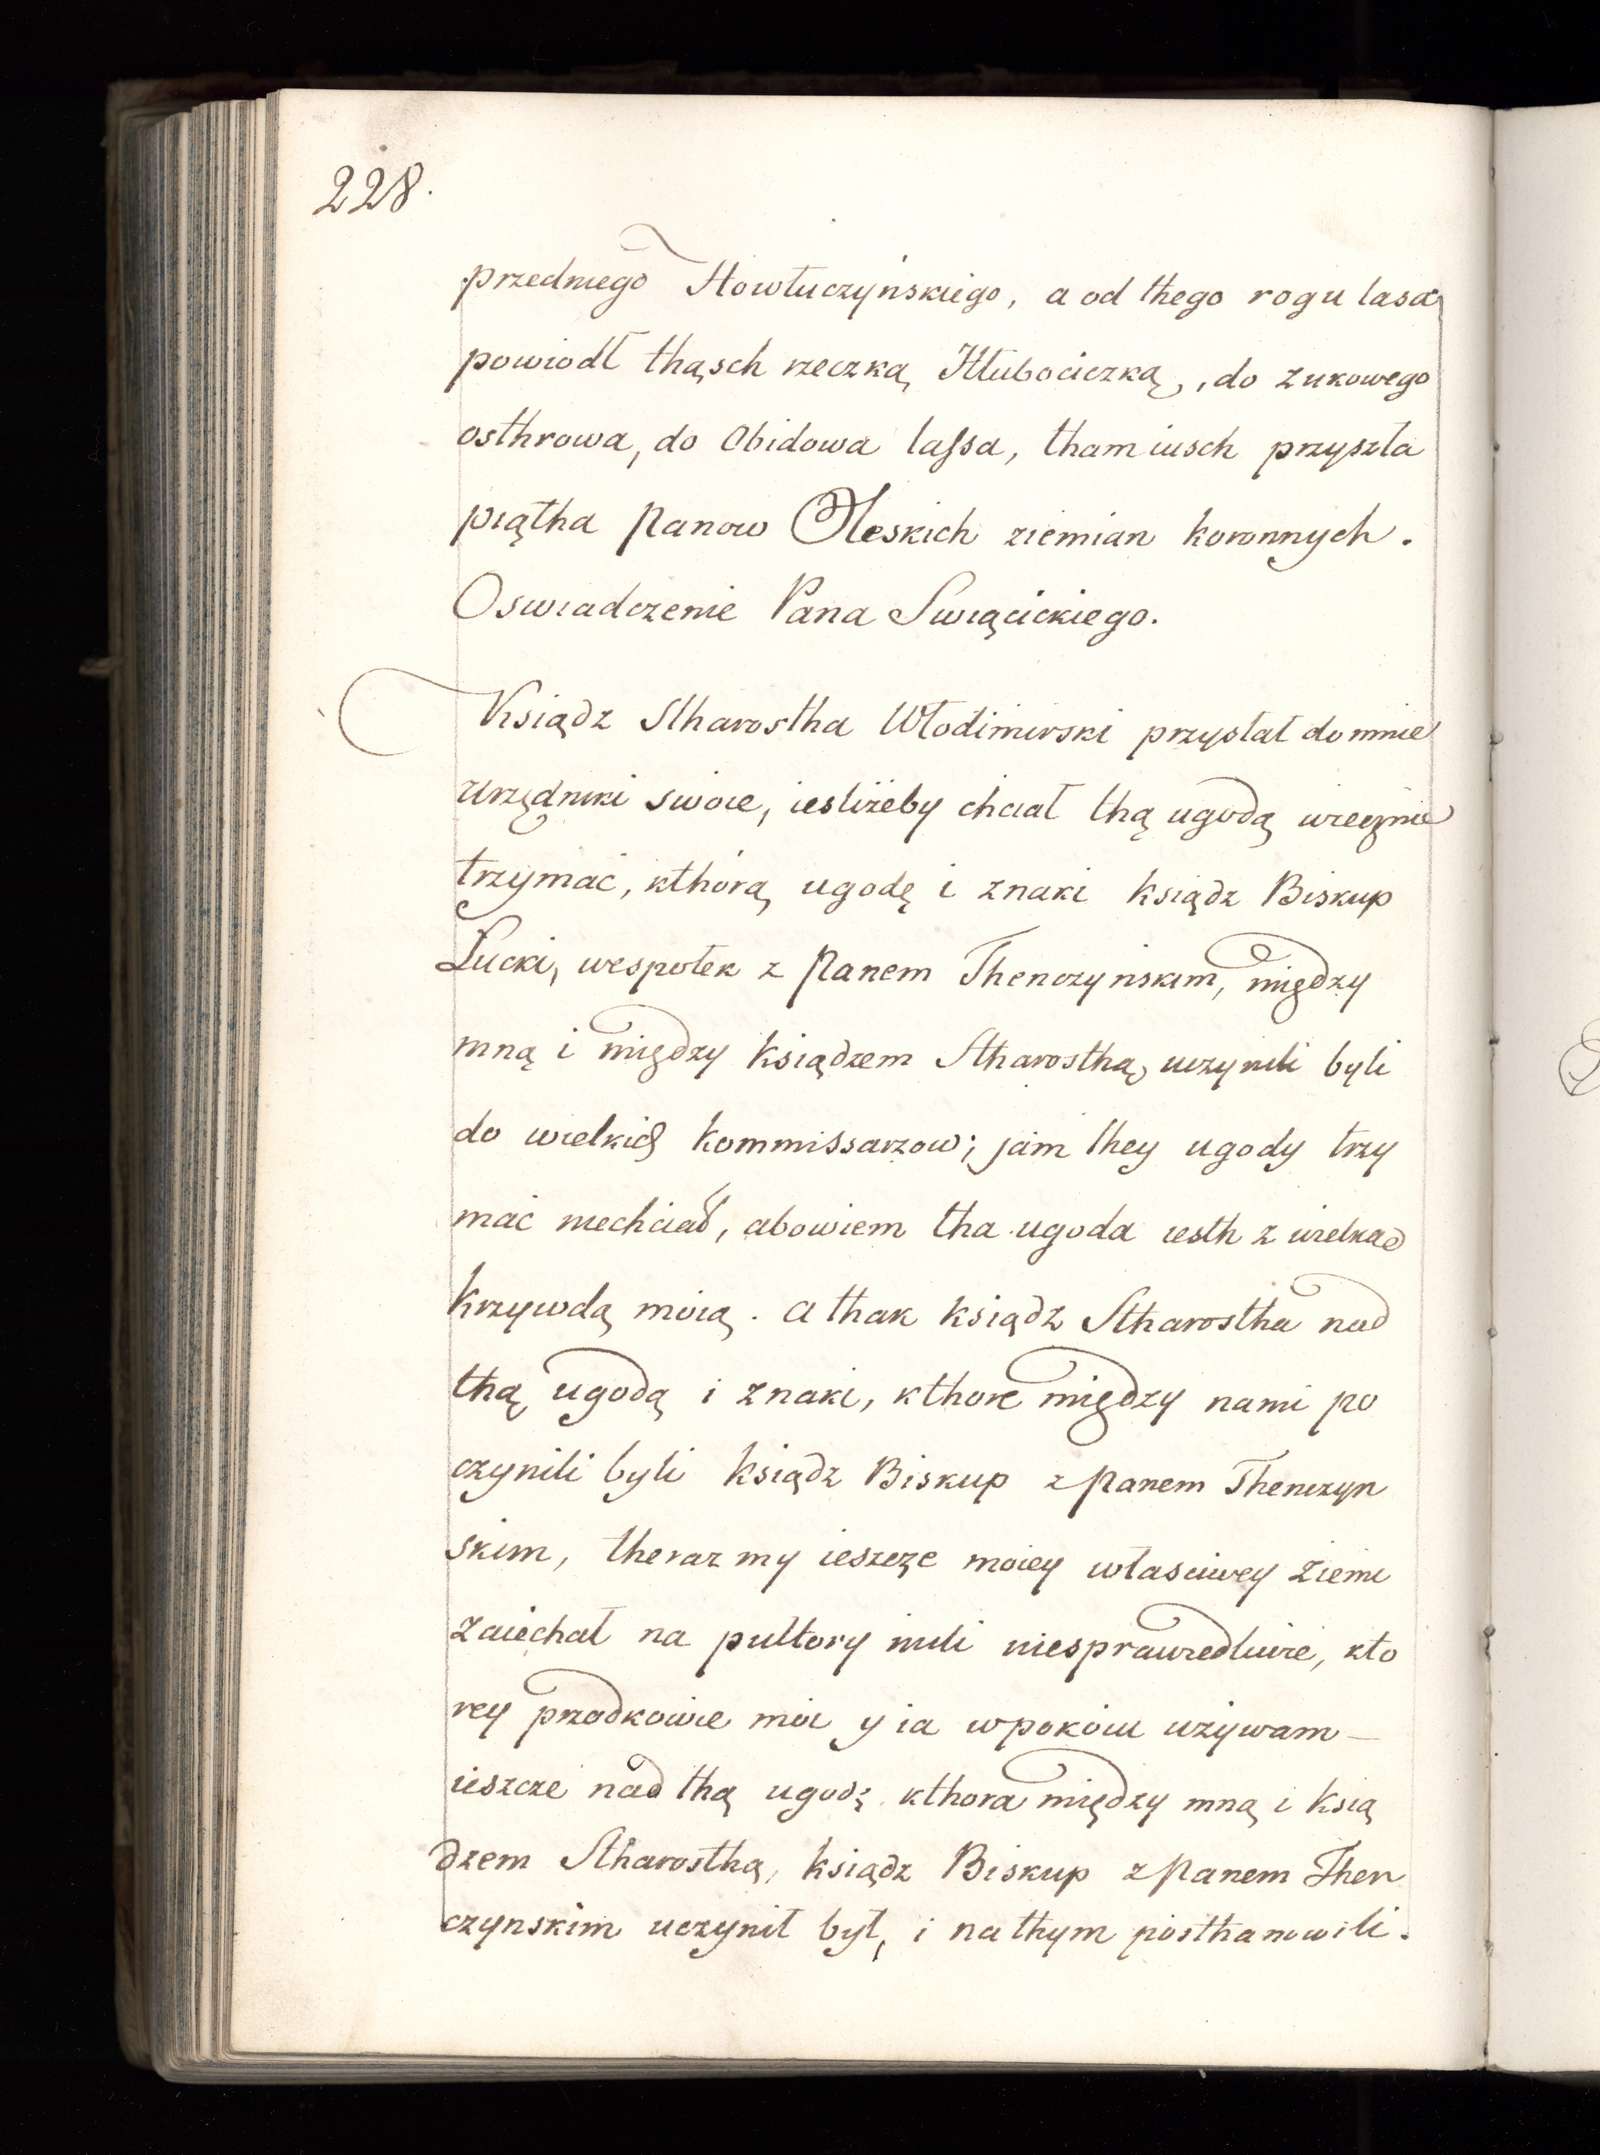 228.
przedniego Howłuczyńskiego, a od thego rogu lasa
powiodł thąsch rzeczką Hłubociczką, do Zukowego
osthrowa, do Obidowa lassa, tham iusch przyszła
piątha Panow Oleskich ziemian koronnych.
Oswiadczenie Pana Swiącickiego.
Ksiądz Stharostha Włodimirski przysłał do mnie
urzędniki swoie, iesliżeby chciał thą ugodą wiecznie
trzymać, kthórą ugodę i znaki ksiądz Biskup
Łucki, wespołek z Panem Thenczynskim, między
mną i między księdzem Stharosthą, uczynili byli
do wielkich kommissarzow; jam they ugody trzy
mać niechciał, abowiem tha ugoda iesth z wielką
krzywdą moią. a thak ksiądz Stharostha nad
thą ugodą i znaki, kthore między nami po
czynili byli ksiądz Biskup z Panem Thenczyn
skim, theraz my ieszcze moiey własciwey ziemi
zaiechał na pułtory mili niesprawiedliwie, kto
rey przodkowie moi y ia w pokoiu używam —
ieszcze nad thą ugodę kthora między mną i ksią
dzem Stharosthą, ksiądz Biskup z Panem Then
czynskim uczynił był, i na thym posthanowili.